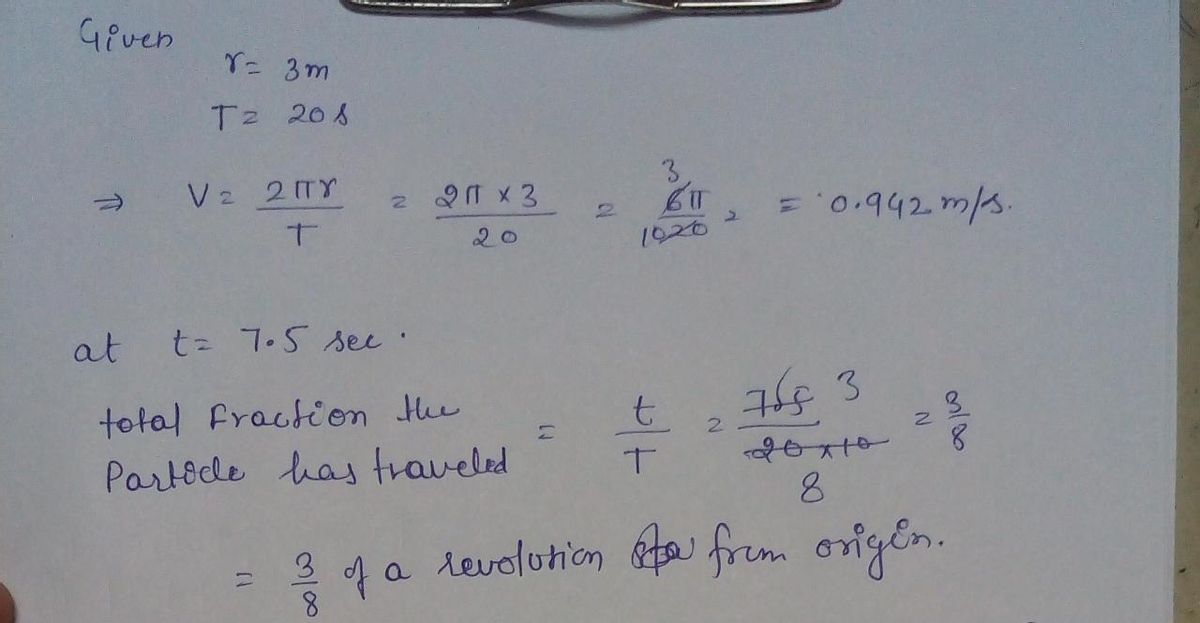 Given
r = 3m
T = 20 s
⇒ V = 2πr/T = 2π × 3/20 = 3 6π/10 20 = 0.942 m/s.
at t = 7.5 sec.
total Fraction the
Particle has traveled = t/T = 75 3/20×10 8 = 3/8
= 3/8 of a revolution from origin.